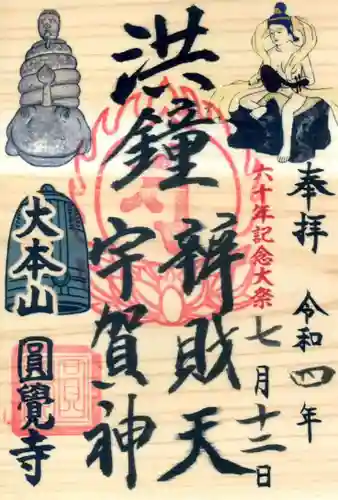 奉拝
令和四年
六十年記念大祭
七月十二日
洪鐘
辨財天
宇賀神
大本山
圓覺寺